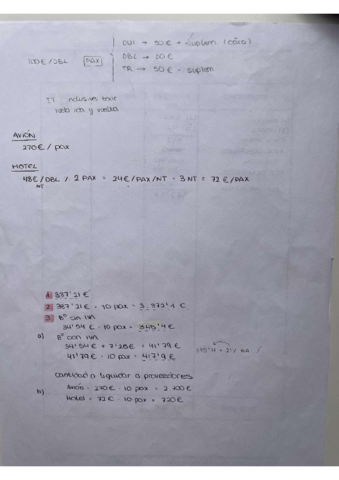 DUI → 50€ + suplem (caro)
100€/DBL PAX DBL → 50€
TR → 50€ - suplem
IT inclusive tour
ida y vuelta
AVIÓN
270€ / pax
HOTEL
48€/DBL / 2 PAX = 24€/PAX/NT · 3 NT = 72€/PAX
NT
1. 387'21€
2. 387'21€ · 10 pax = 3.872'1€
3. Bº sin IVA
34'54€ · 10 pax = 345'4€
a) Bº con IVA
34'54€ + 7'25€ = 41'79€
345'4 + 21% IVA
41'79€ · 10 pax = 417'9€
cantidad a liquidar a proveedores
b) Avión = 270€ · 10 pax = 2.700€
Hotel = 72€ · 10 pax = 720€